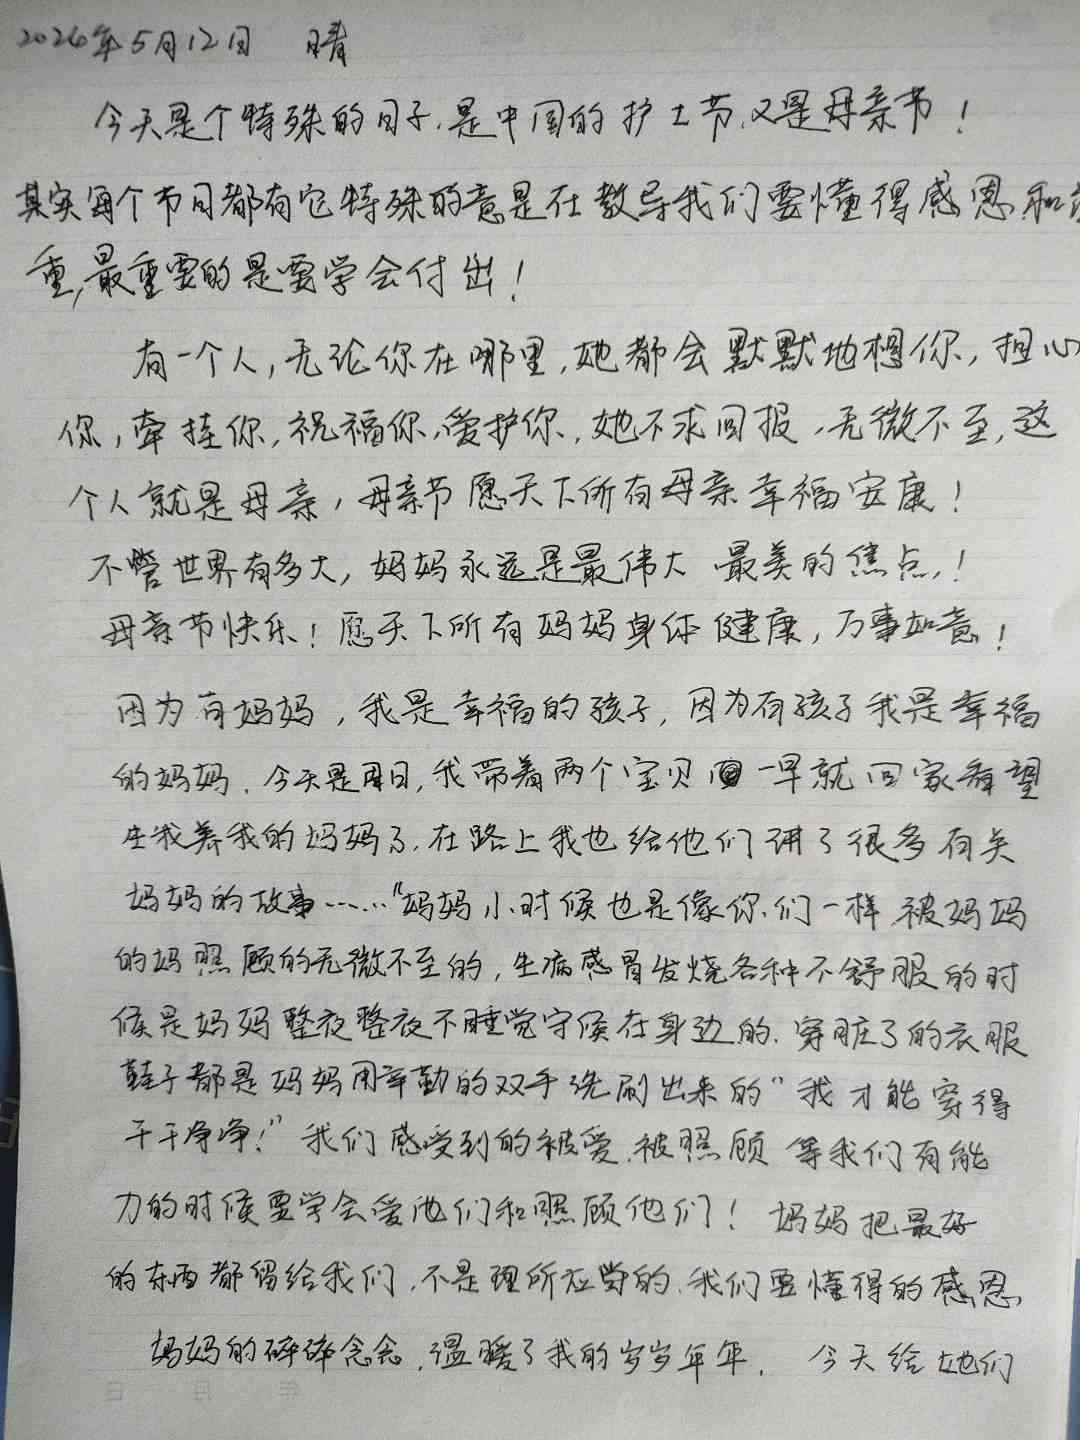 2024年5月12日 晴
今天是个特殊的日子,是中国的护士节,又是母亲节!
其实每个节日都有它特殊的意是在教导我们要懂得感恩和
重,最重要的是要学会付出!
有一个人,无论你在哪里,她都会默默地想你,担心
你,牵挂你,祝福你,爱护你,她不求回报,无微不至,这
个人就是母亲,母亲节愿天下所有母亲幸福安康!
不管世界有多大,妈妈永远是最伟大 最美的焦点,!
母亲节快乐!愿天下所有妈妈身体健康,万事如意!
因为有妈妈,我是幸福的孩子,因为有孩子我是幸福
的妈妈.今天是周日,我带着两个宝贝一早就回家看望
生我养我的妈妈了.在路上我也给他们讲了很多有关
妈妈的故事……"妈妈小时候也是像你们一样被妈妈
的妈照顾的无微不至的,生病感冒发烧各种不舒服的时
候是妈妈整夜整夜不睡觉守候在身边的.穿脏了的衣服
鞋子都是妈妈用辛勤的双手洗刷出来的"我才能穿得
干干净净!"我们感受到的被爱.被照顾 等我们有能
力的时候要学会爱他们和照顾他们!妈妈把最好
的东西都留给我们,不是理所应当的.我们要懂得的感恩
妈妈的碎碎念念,温暖了我的岁岁年年. 今天给她们